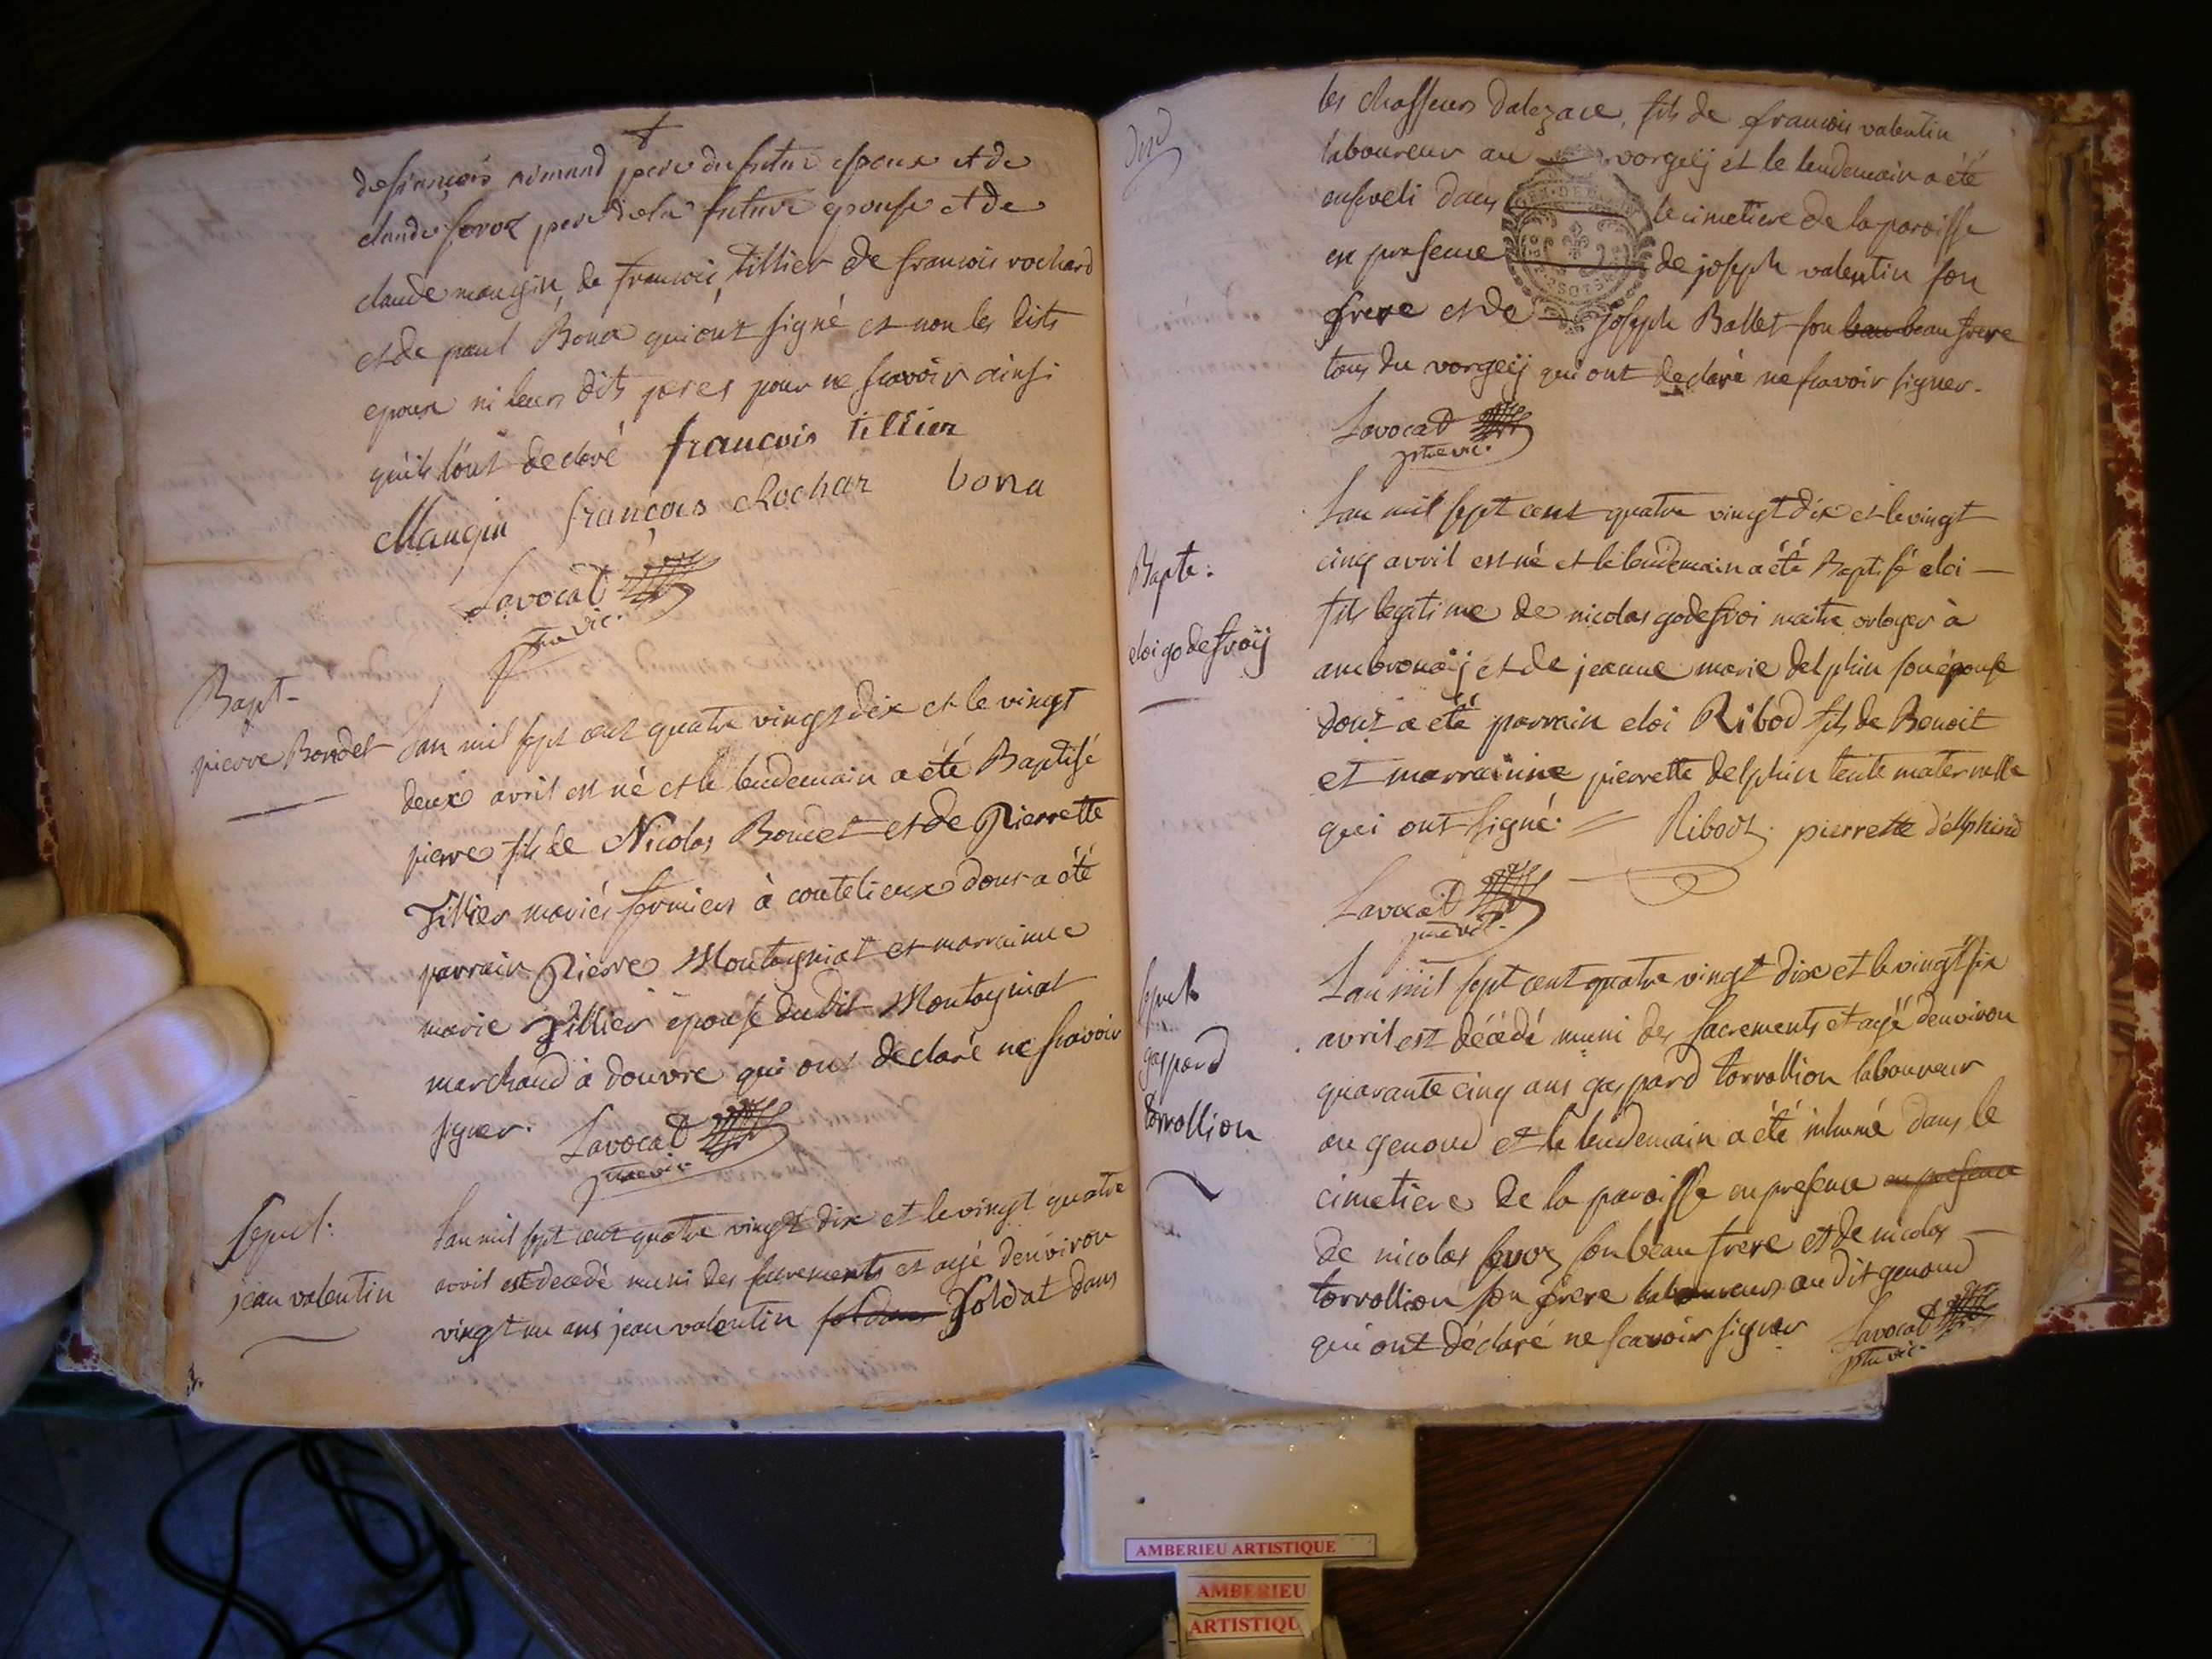 de françois armand pere du futur epoux et de
claude favor pere de la future epouse et de
claude mangin, de francois tillier de francois rochard
et de paul Bona qui ont signé et non les dits
epoux ni leurs dits peres pour ne scavoir ainsi
qu'ils l'ont declaré francois tillier
Mangin françois Rochar bona
Lavocat
ptre vic.
Bapt-
pierre Bondet
Lan mil sept cent quatre vingt dix et le vingt
deux avril est né et le lendemain a été Baptisé
pierre fils de Nicolas Boudet et de Pierrette
Tillier mariés fermiers à coutelieux dont a été
parrain Pierre Montagniat et marrainne
marie Tillier epouse du dit Montagniat
marchand à douvre qui ont declaré ne scavoir
signer. Lavocat
ptre vic.
Sepul:
jean valentin
Lan mil sept cent quatre vingt dix et le vingt quatre
avril est decedé muni des sacrements et agé denviron
vingt un ans jean valentin soldat dans
les chasseurs dalezace, fils de francois valentin
laboureur au vorgeÿ et le lendemain a été
enseveli dans le cimetiere de la paroisse
en presence de joseph valentin son
frere et de joseph Ballet son beau frere
tous du vorgeÿ qui ont declaré ne scavoir signer.
Lavocat
ptre vic.
Bapte:
eloi godefroÿ
Lan mil sept cent quatre vingt dix et le vingt
cinq avril est né et le lendemain a été Baptisé eloi
fils legitime de nicolas godefroi maitre orloger à
ambronaÿ et de jeanne marie delphin son épouse
dont a eté parrain eloi Ribod fils de Benoit
et marrainne pierrette delphin tente maternelle
qui ont signé. Ribod pierrette délphind
Lavocat
ptre vic.
sepul.
gaspard
torrollion
Lan mil sept cent quatre vingt dix et le vingt six
avril est décédé muni des sacrements et agé denviron
quarante cinq ans gaspard torrollion laboureur
au genoud et le lendemain a été inhumé dans le
cimetiere de la paroisse en presence en presence
de nicolas favor son beau frere et de nicolas
torrollion son frere laboureurs au dit genoud
qui ont déclaré ne scavoir signer Lavocat
ptre vic.
AMBERIEU ARTISTIQUE
AMBERIEU
ARTISTIQU